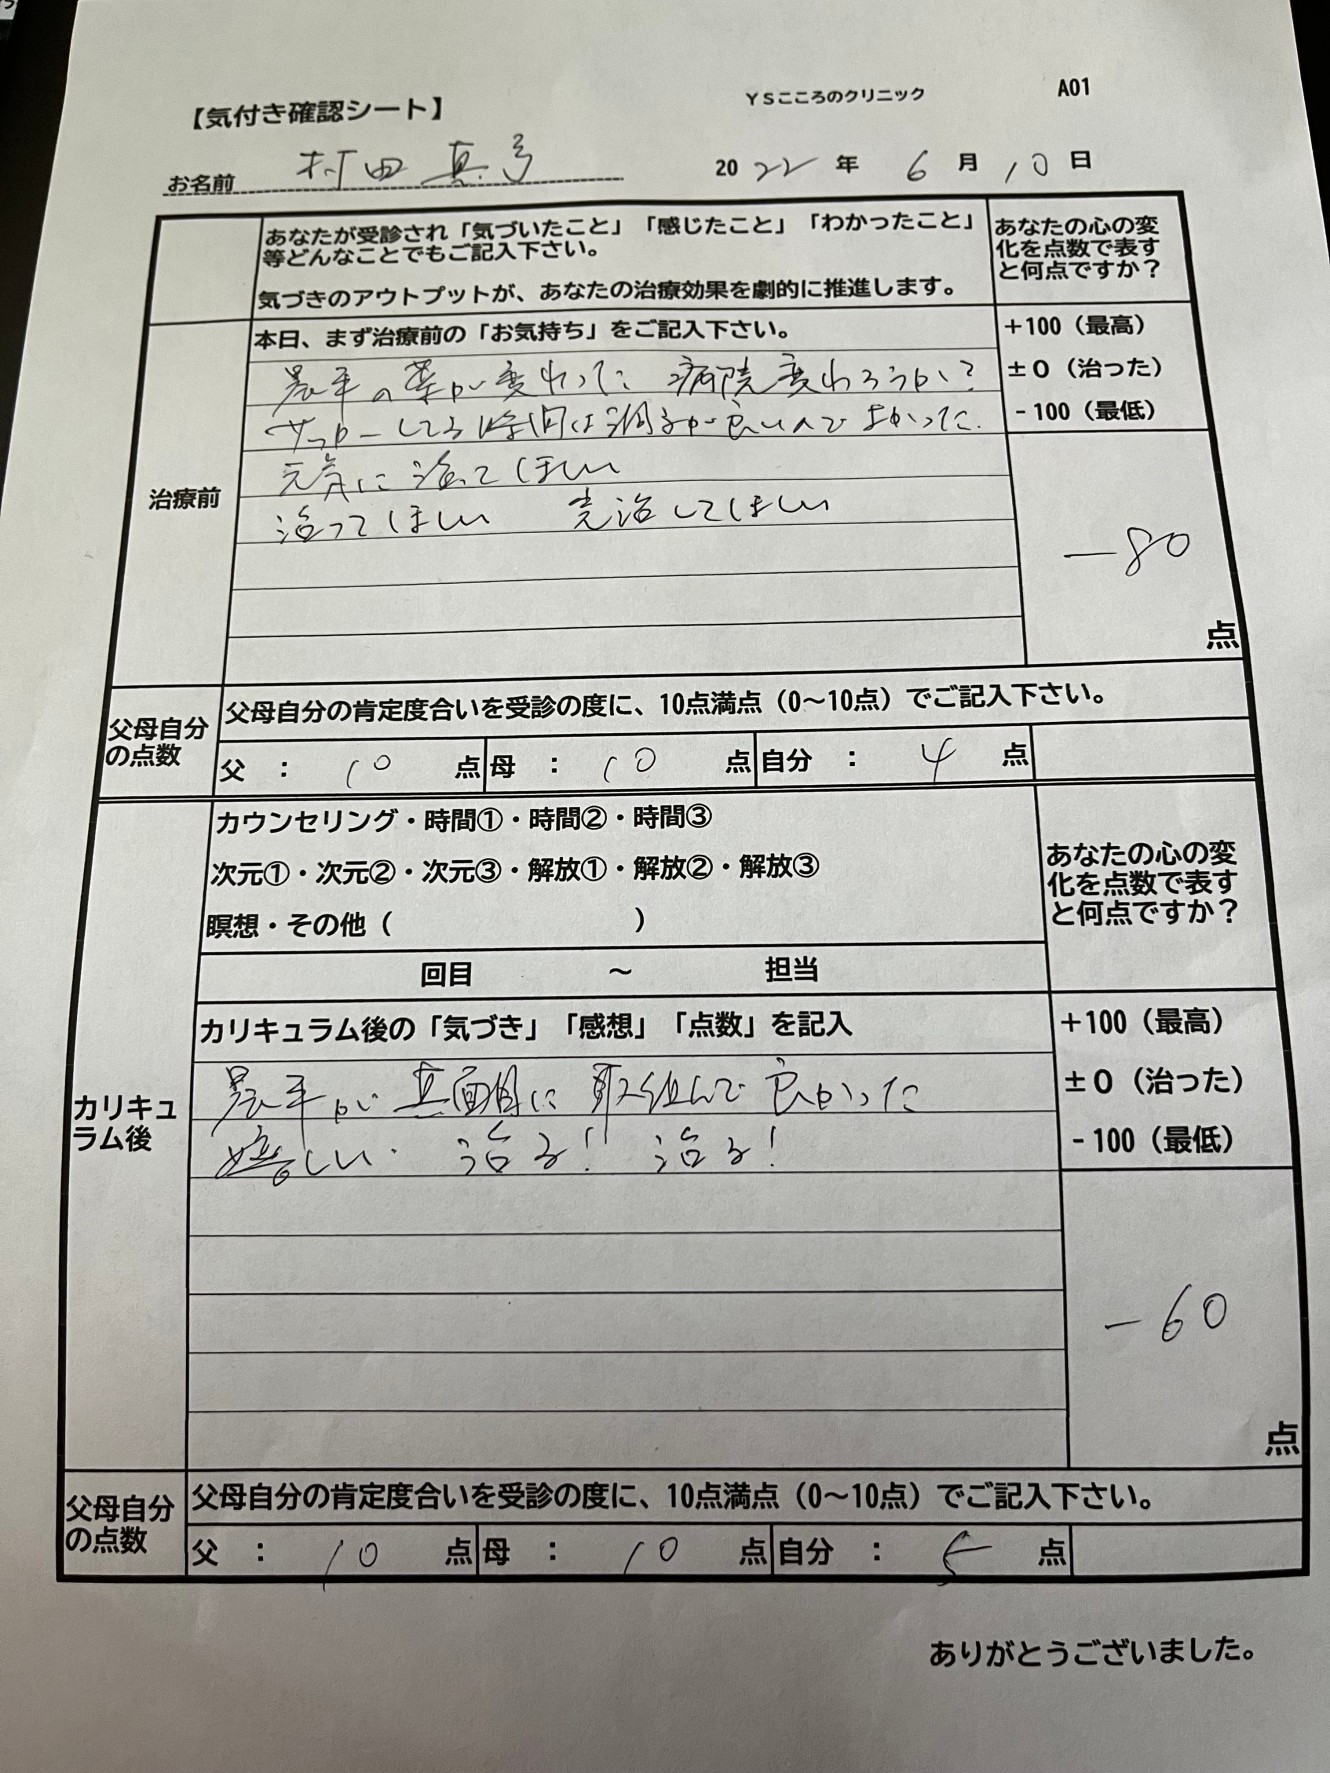 【気付き確認シート】
YSこころのクリニック
A01
お名前 村田 真弓
2022年 6月 10日
あなたが受診され「気づいたこと」「感じたこと」「わかったこと」
等どんなことでもご記入下さい。
気づきのアウトプットが、あなたの治療効果を劇的に推進します。
あなたの心の変
化を点数で表す
と何点ですか？
治療前
本日、まず治療前の「お気持ち」をご記入下さい。
晃平の薬が変わった 病院変わろうか?
サッカーしてる時間は調子が良いんでよかった.
元気に治ってほしい
治ってほしい 完治してほしい
+100（最高）
±0（治った）
-100（最低）
-80
点
父母自分
の点数
父母自分の肯定度合いを受診の度に、10点満点（0〜10点）でご記入下さい。
父 ： 10 点 母 ： 10 点 自分 ： 4 点
カリキュ
ラム後
カウンセリング・時間①・時間②・時間③
次元①・次元②・次元③・解放①・解放②・解放③
瞑想・その他（ ）
回目 〜 担当
あなたの心の変
化を点数で表す
と何点ですか？
カリキュラム後の「気づき」「感想」「点数」を記入
晃平が 真面目に 取組んで 良かった
嬉しい. 治る! 治る!
+100（最高）
±0（治った）
-100（最低）
-60
点
父母自分
の点数
父母自分の肯定度合いを受診の度に、10点満点（0〜10点）でご記入下さい。
父 ： 10 点 母 ： 10 点 自分 ： 5 点
ありがとうございました。